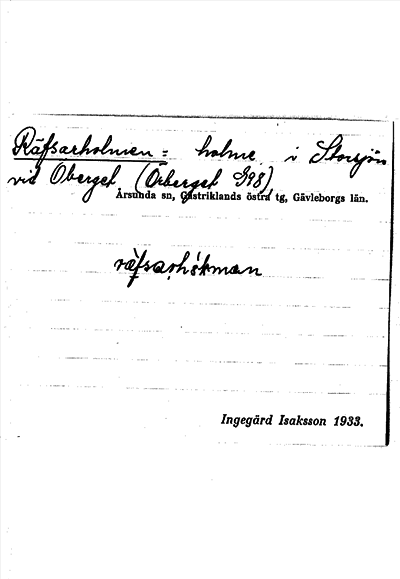 Räfsarholmen = holme i Storsjön
vid Oberget (Örberget S98),
Årsunda sn, Gästriklands östra tg, Gävleborgs län.
Ingegärd Isaksson 1933.